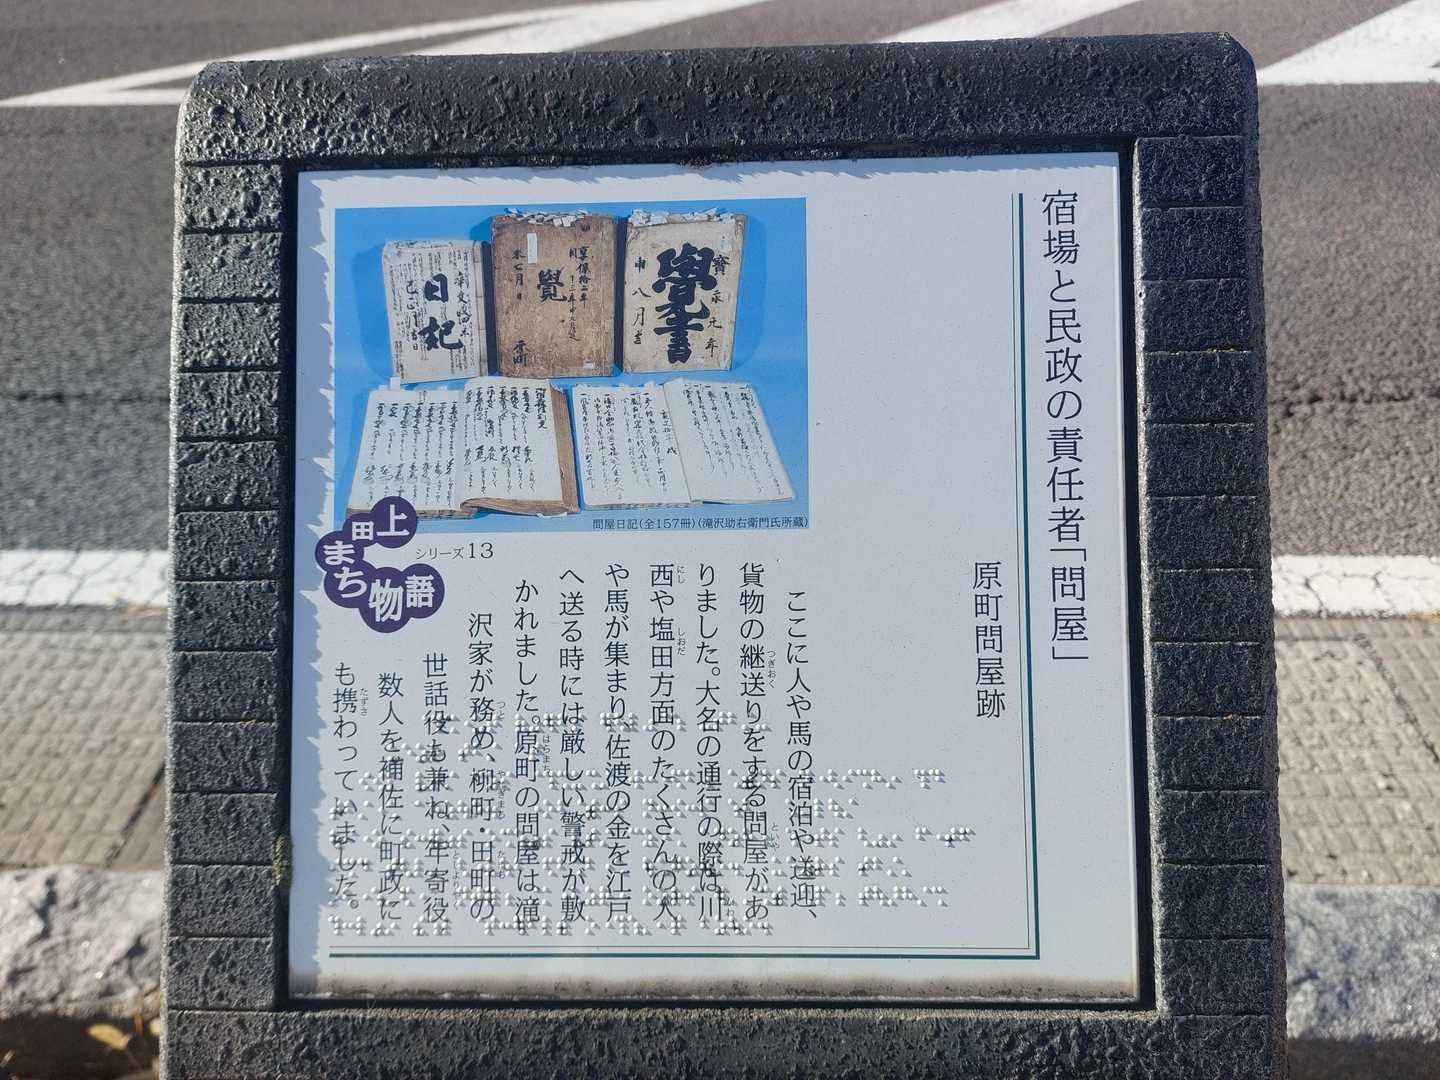 宿場と民政の責任者「問屋」
原町問屋跡
ここに人や馬の宿泊や送迎、
貨物の継送りをする問屋があ
つぎおく
といや
りました。大名の通行の際は、川
西や塩田方面のたくさんの人
にし
しおだ
や馬が集まり、佐渡の金を江戸
へ送る時には厳しい警戒が敷
かれました。原町の問屋は滝
はらまち
沢家が務め、柳町・田町の
つと
やなぎまち
たまち
世話役も兼ね、年寄役
としよりやく
数人を補佐に町政に
も携わっていました。
たずさ
日記
覺
享保拾二年
覺書
寳永元年
申八月吉
問屋日記(全157冊)(滝沢助右衛門氏所蔵)
シリーズ13
上田
まち
物語